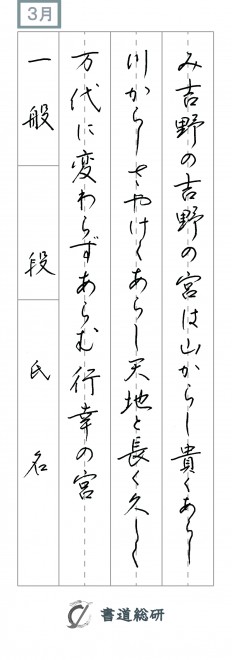 3月
み吉野の吉野の宮は山からし貴くあらし
川からしさやけくあらし天地と長く久しく
万代に変わらずあらむ行幸の宮
一般 段 氏名
書道総研